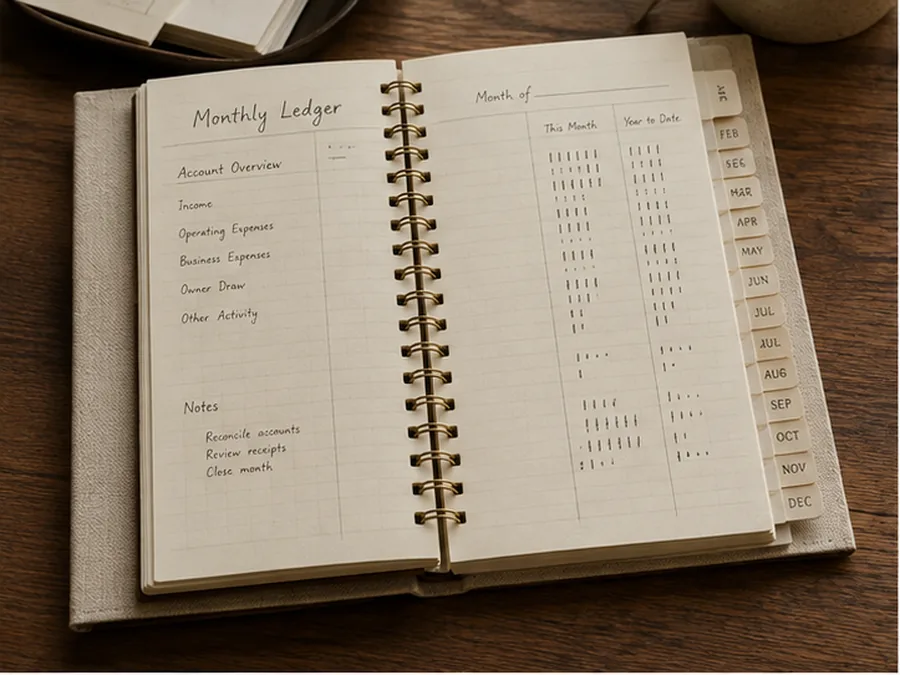 Monthly Ledger
Account Overview
Income
Operating Expenses
Business Expenses
Owner Draw
Other Activity
Notes
Reconcile accounts
Review receipts
Close month
Month of
This Month
Year to Date
FEB
MAR
APR
MAY
JUN
JUL
JUL
AUG
SEP
OCT
NOV
DEC